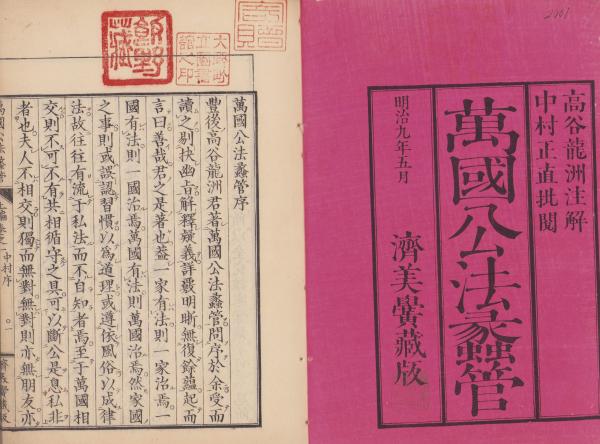 高谷龍洲注解
中村正直批閱
萬國公法蠡管
明治九年五月
濟美黌藏版
萬國公法蠡管序
豐後高谷龍洲君著萬國公法蠡管問序於余受而
讀之剔抉幽旨解釋疑義詳覈明晰無復餘蘊起而
言曰善哉君之是著也蓋一家有法則一家治焉一
國有法則一國治焉萬國有法則萬國治焉然家國
之事則或誤認習慣以為道理或遵依風俗以成律
法故往往有流于私法而不自知者焉至于萬國相
交則不可不有共相循守之具可以斷公是息私非
者也夫人不相交則獨而無對無對則亦無朋友亦
萬國公法蠡管
中村序
〇一
濟美黌藏版